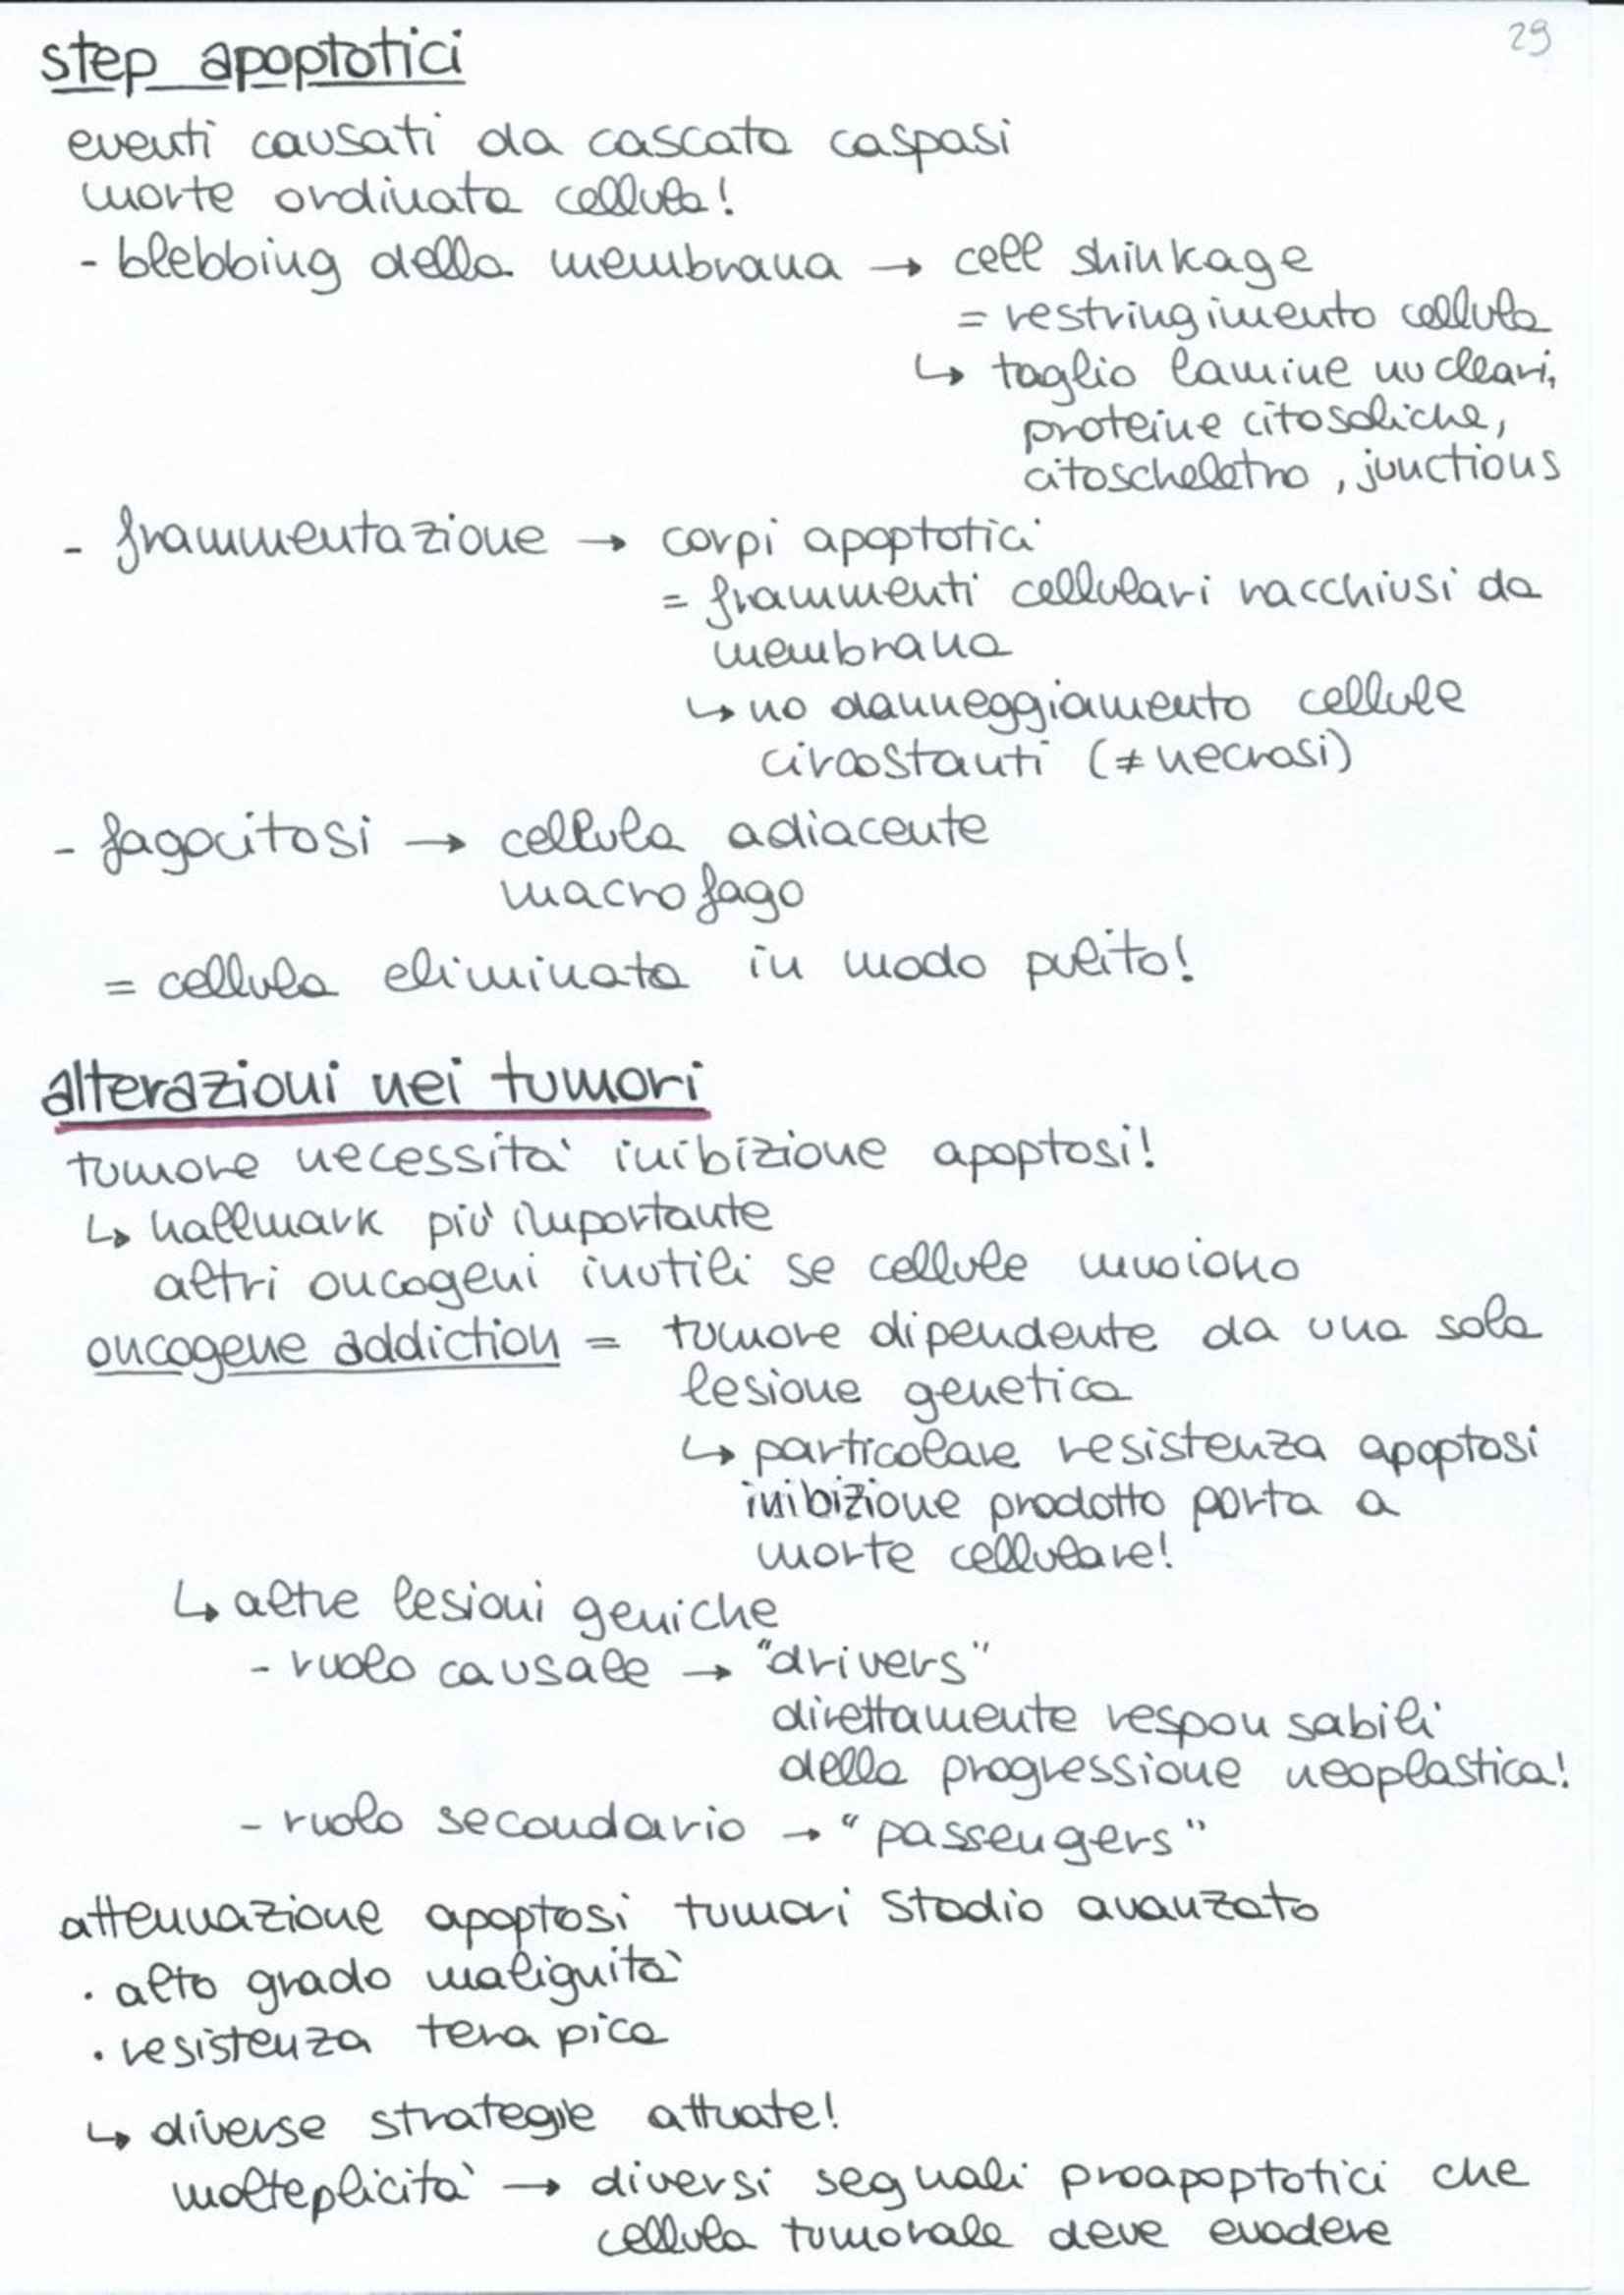 29
step apoptotici
eventi causati da cascata caspasi
morte ordinata cellula!
- blebbing della membrana → cell shinkage
= restringimento cellula
↳ taglio lamine nucleari,
proteine citosoliche,
citoscheletro, junctions
- frammentazione → corpi apoptotici
= frammenti cellulari racchiusi da
membrana
↳ no danneggiamento cellule
circostanti (≠ necrosi)
- fagocitosi → cellula adiacente
macrofago
= cellula eliminata in modo pulito!
alterazioni nei tumori
tumore necessità inibizione apoptosi!
↳ hallmark più importante
altri oncogeni inutili se cellule muoiono
oncogene addiction = tumore dipendente da una sola
lesione genetica
↳ particolare resistenza apoptosi
inibizione prodotto porta a
morte cellulare!
↳ altre lesioni geniche
- ruolo causale → "drivers"
direttamente responsabili
della progressione neoplastica!
- ruolo secondario → "passengers"
attenuazione apoptosi tumori stadio avanzato
· alto grado malignità
· resistenza terapica
↳ diverse strategie attuate!
molteplicità → diversi segnali proapoptotici che
cellula tumorale deve evadere